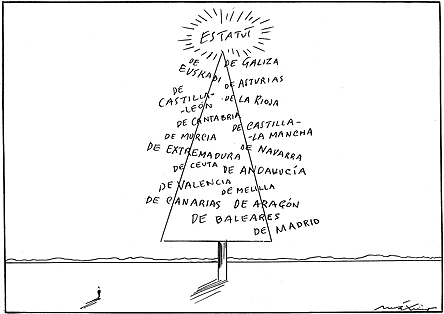 ESTATUT
DE EUSKADI
DE GALIZA
DE ASTURIAS
DE CASTILLA-
-LEÓN
DE LA RIOJA
DE CANTABRIA
DE CASTILLA-
-LA MANCHA
DE MURCIA
DE EXTREMADURA
DE NAVARRA
DE CEUTA
DE ANDALUCÍA
DE VALENCIA
DE MELILLA
DE CANARIAS
DE ARAGÓN
DE BALEARES
DE MADRID
máximo